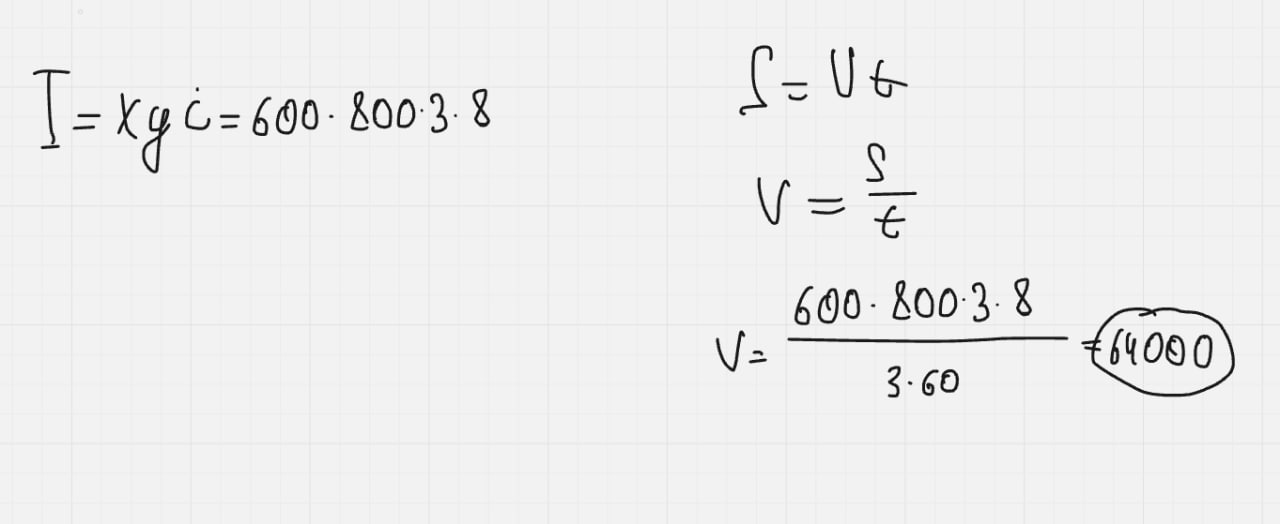 I = xyi = 600 · 800 · 3 · 8
S = Vt
V = S/t
V = (600 · 800 · 3 · 8)/(3 · 60) = 64000